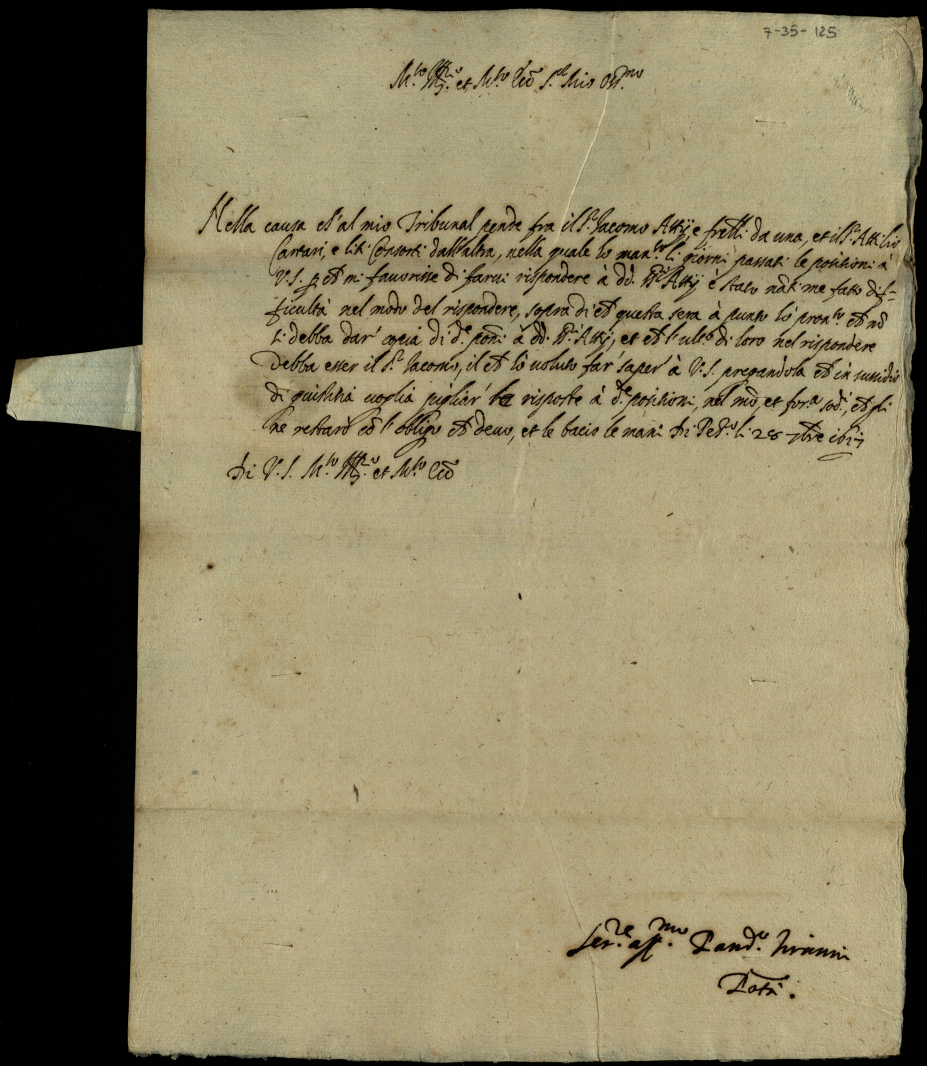 7-35-125
M.to Ill.re et M.to Ecc.te S.r Mio Oss.mo
Nella causa ch'al mio Tribunal pende fra il S.r Jacomo Attij e fratelli da una, et il S.r Attilio
Cartari, e liti Consorti dall'altra, nella quale io man. li giorni passati le positioni à
V.S. p. ch mi favorisse di farvi rispondere à dd. Attij è stato fatto dif-
ficultà nel modo del rispondere, sopra di ch questa sera à punto ch nō
si debba dar' copia di d.e pōni à dd. Attij, et ch l'ult.o di loro nel rispondere
debba esser il S.r Jacomo, il ch hò voluto far' saper' à V.S. pregandola ch in sussidio
di giustitia voglia pigliar' le risposte à d.e positioni, nel mō, et for.a sod., ch gli
ne restarò cō l'obligo ch devo, et le bacio le mani. Di li 28
Di V.S. M.to Ill.re et M.to Ecc.te
Ser.re aff.mo Pand.o
Potā.